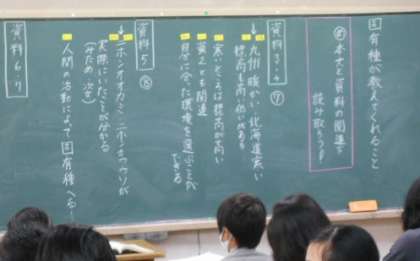 固有種が教えてくれること
め 本文と資料の関連を
読み取ろう
資料3・4
⑦
九州 暖かい 北海道 寒い
標高も高い低いがある
寒いところは標高が高い
黄 とも関連
自分に合った環境を選ぶことが
できる
資料5
⑧
ニホンオオカミ ニホンカワウソが
実際にいたことが分かる
人間の活動によって固有種へる
資料6・7